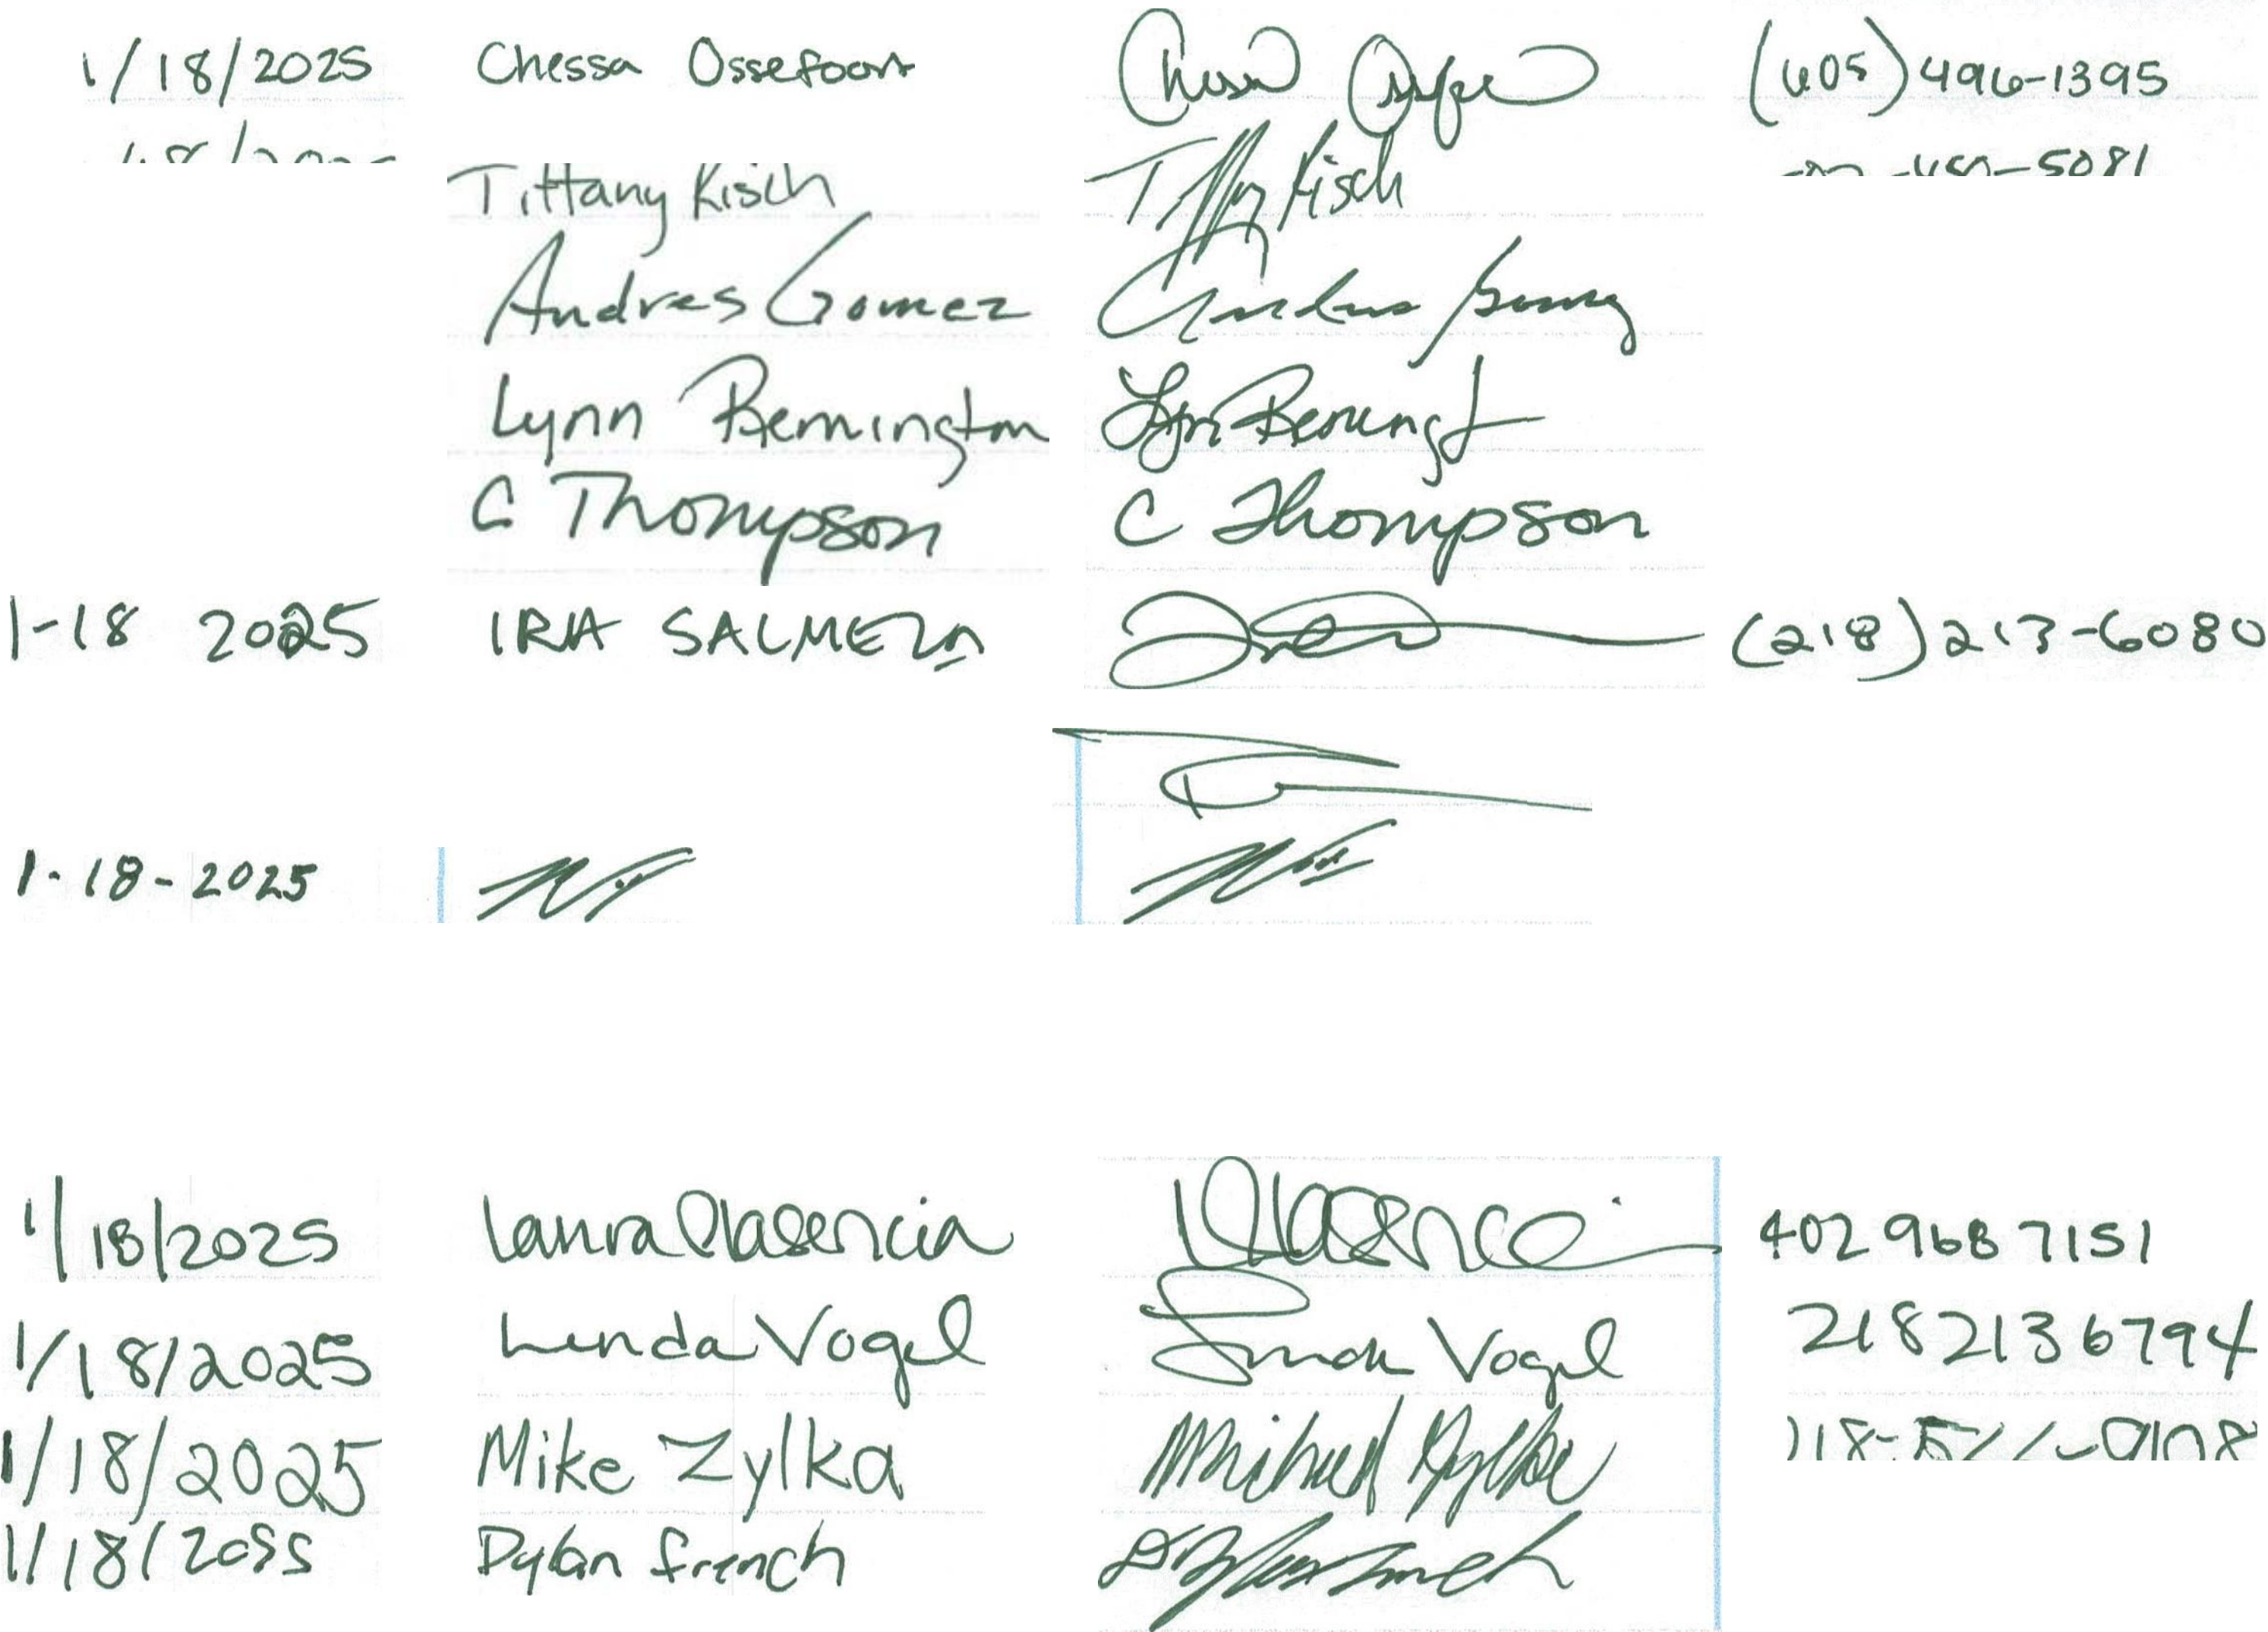 1/18/2025 Chessa Ossefoort (605)496-1395
Tiffany Kisch Tiffany Kisch
Andres Gomez
Lynn Remington
C Thompson C Thompson
1-18 2025 IRIA SALMELA (218)213-6080
1-18-2025
1/18/2025 Laura Plasencia 402 968 7151
1/18/2025 Linda Vogel Linda Vogel 218 213 6794
1/18/2025 Mike Zylka Michael Zylka
1/18/2055 Dylan French